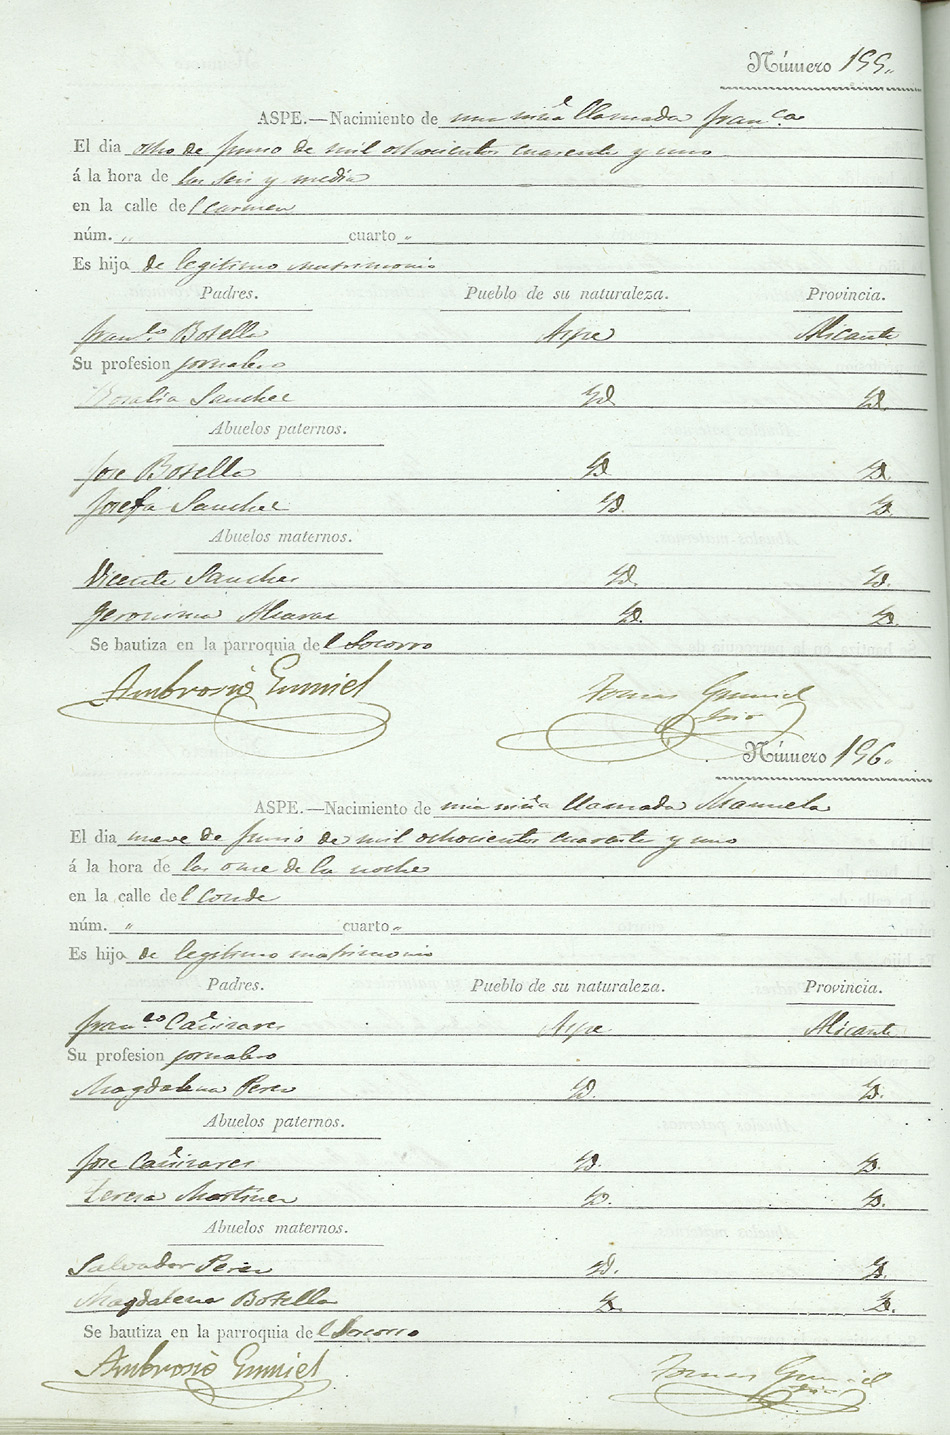 Número 155.
ASPE.—Nacimiento de una niña llamada Fran.ca
El dia ocho de Junio de mil ochocientos cuarenta y uno
á la hora de las seis y media
en la calle del Carmen
núm. " cuarto "
Es hijo de legitimo matrimonio
Padres. Pueblo de su naturaleza. Provincia.
Fran.co Botella Aspe Alicante
Su profesion jornalero
Rosalia Sanchez Yd. Yd.
Abuelos paternos.
Jose Botella Yd. Yd.
Josefa Sanchez Yd. Yd.
Abuelos maternos.
Vicente Sanchez Yd. Yd.
Geronima Alcaraz Yd. Yd.
Se bautiza en la parroquia del Socorro
Ambrosio Gumiel Tomas Gumiel
Srio
Número 156.
ASPE.—Nacimiento de una niña llamada Manuela
El dia nueve de Junio de mil ochocientos cuarenta y uno
á la hora de las once de la noche
en la calle del Conde
núm. " cuarto "
Es hijo de legitimo matrimonio
Padres. Pueblo de su naturaleza. Provincia.
Fran.co Cañizares Aspe Alicante
Su profesion jornalero
Magdalena Perez Yd. Yd.
Abuelos paternos.
Jose Cañizares Yd. Yd.
Teresa Martinez Yd. Yd.
Abuelos maternos.
Salvador Perez Yd. Yd.
Magdalena Botella Yd. Yd.
Se bautiza en la parroquia del Socorro
Ambrosio Gumiel Tomas Gumiel
Srio